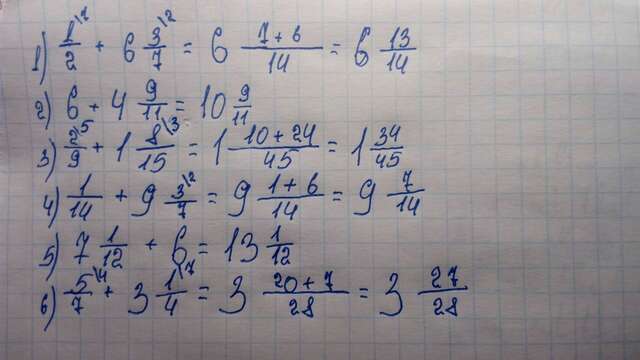 1) 1\7/2 + 6 3\2/7 = 6 7+6/14 = 6 13/14
2) 6 + 4 9/11 = 10 9/11
3) 2\5/9 + 1 8\3/15 = 1 10+24/45 = 1 34/45
4) 1/14 + 9 3\2/7 = 9 1+6/14 = 9 7/14
5) 7 1/12 + 6 = 13 1/12
6) 5\4/7 + 3 1\7/4 = 3 20+7/28 = 3 27/28